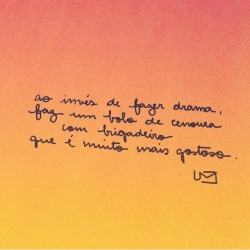 ao invés de fazer drama,
faz um bolo de cenoura
com brigadeiro
que é muito mais gostoso.